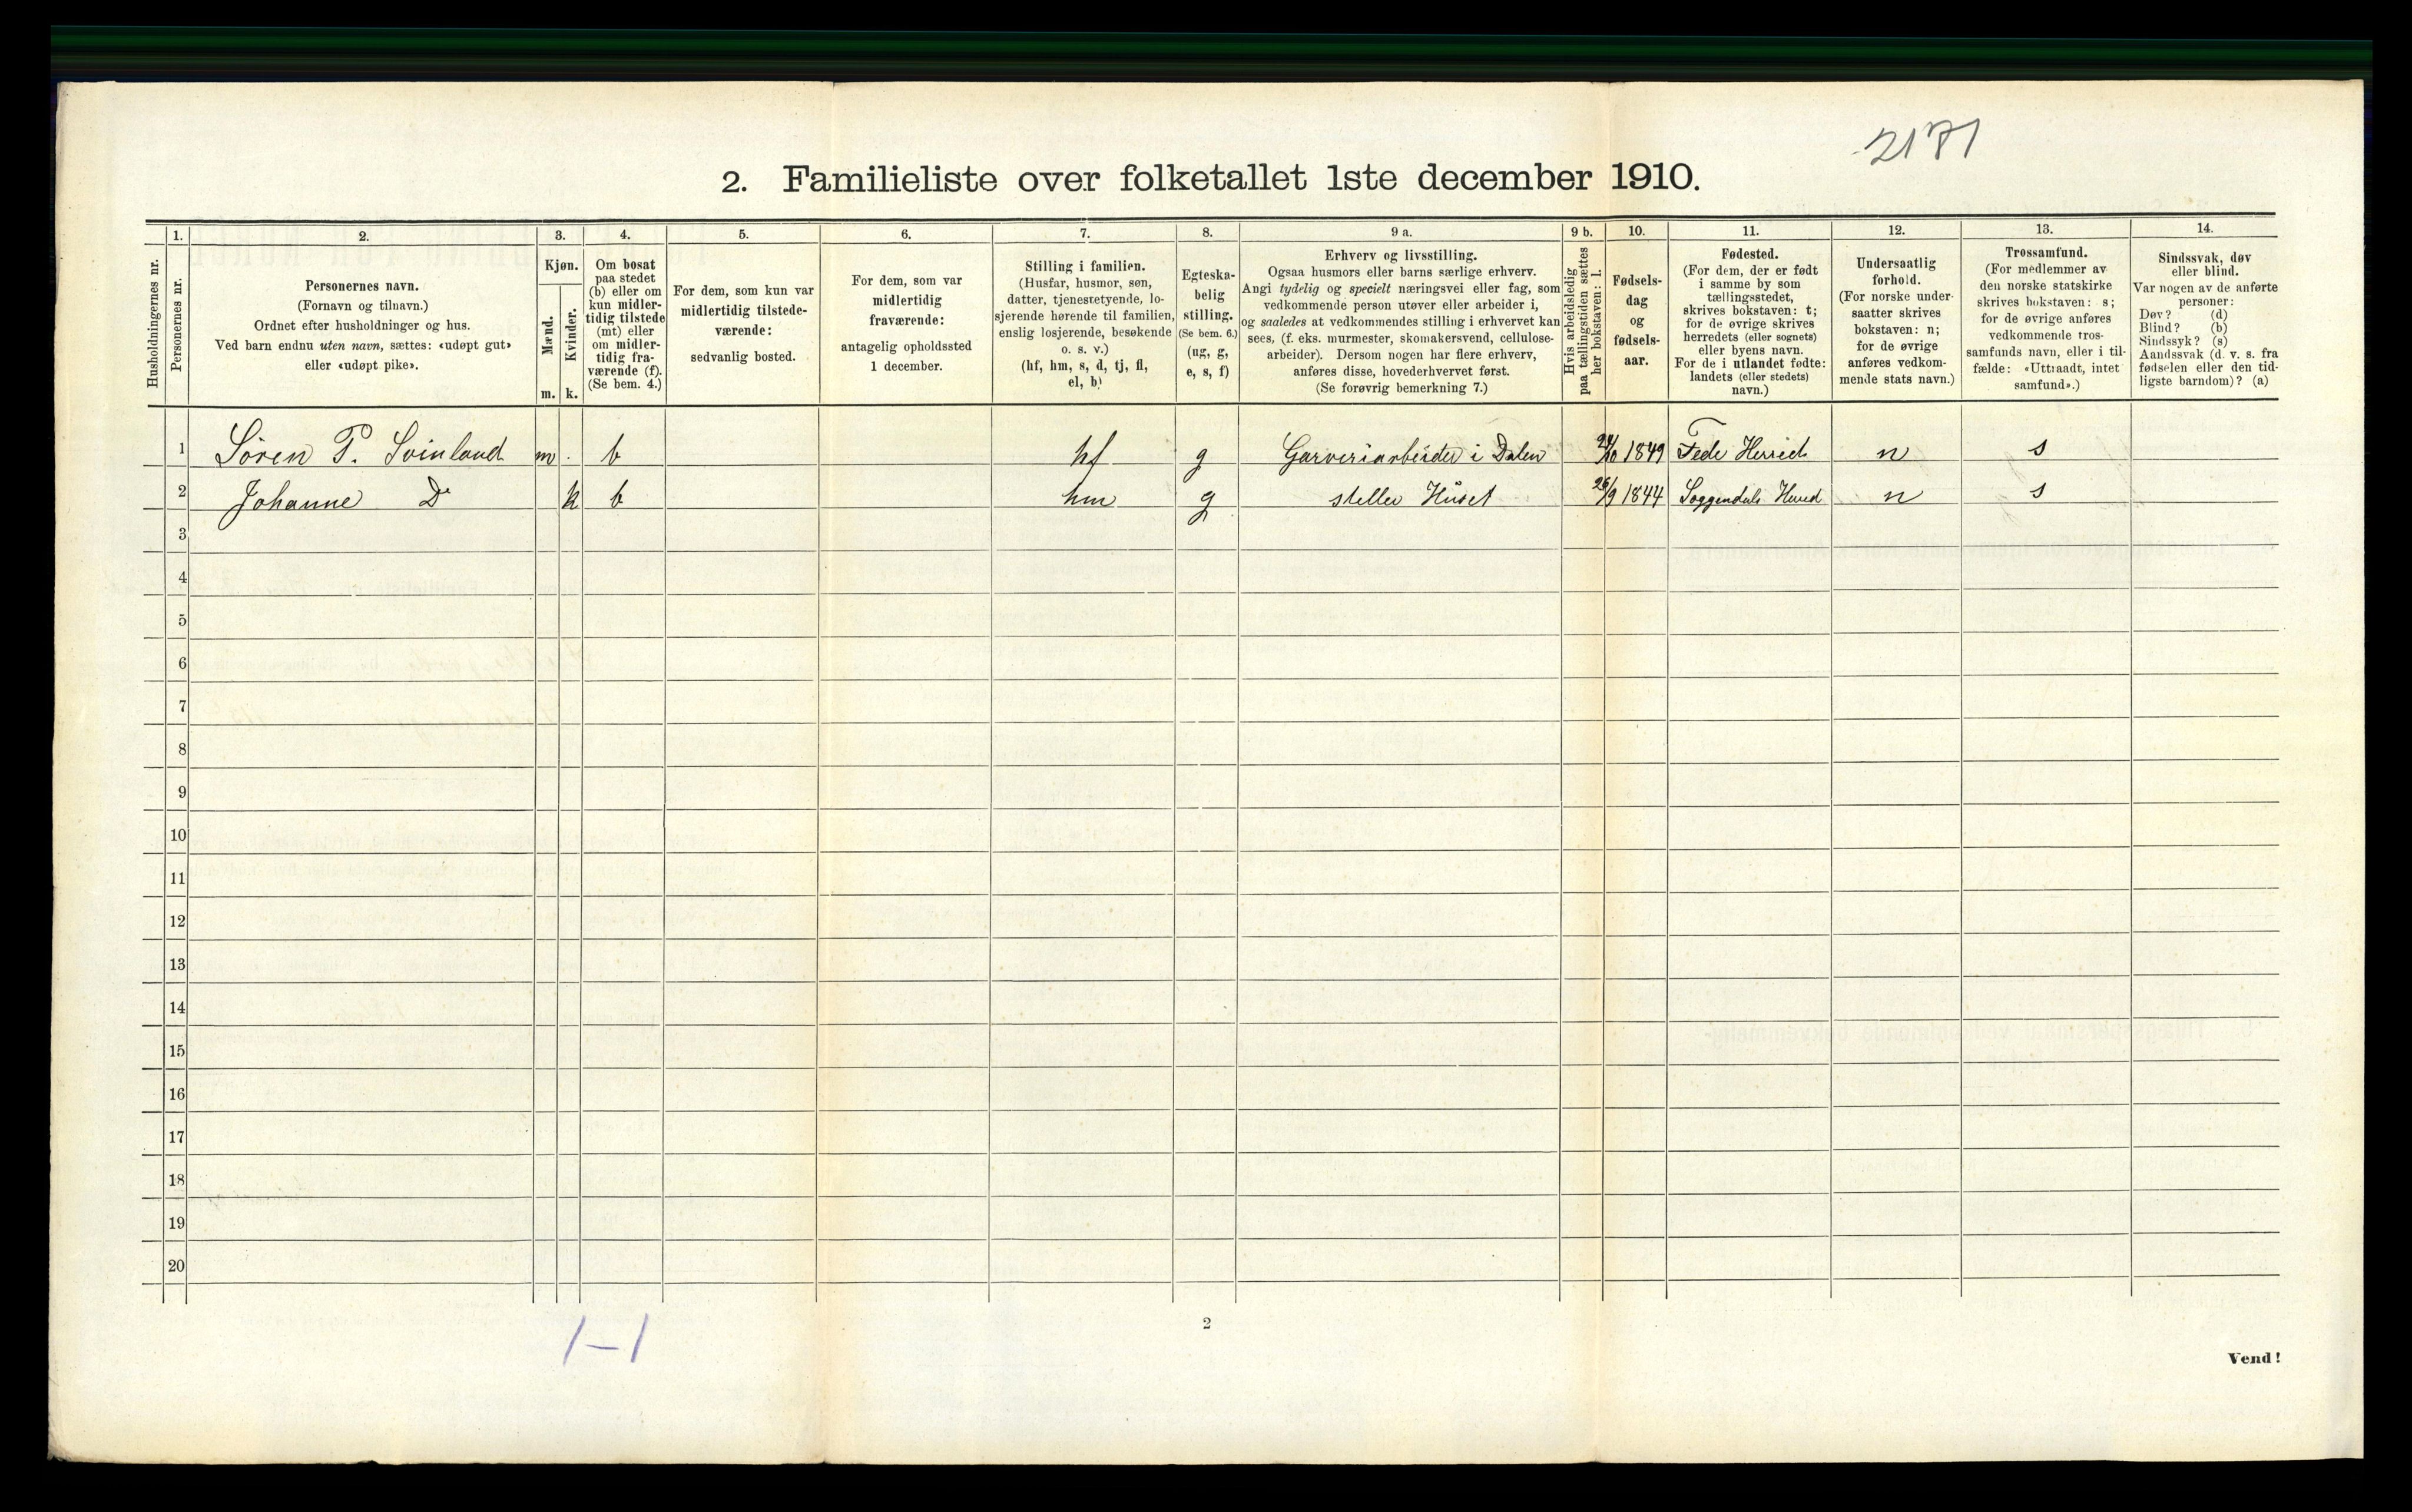 2171
2. Familieliste over folketallet 1ste december 1910.
Husholdningernes nr.
1.
Personernes nr.
2.
Personernes navn.
(Fornavn og tilnavn.)
Ordnet efter husholdninger og hus.
Ved barn endnu uten navn, sættes: «udøpt gut»
eller «udøpt pike».
3.
Kjøn.
Mænd.
m.
Kvinder.
k.
4.
Om bosat
paa stedet
(b) eller om
kun midler-
tidig tilstede
(mt) eller
om midler-
tidig fra-
værende (f).
(Se bem. 4.)
5.
For dem, som kun var
midlertidig tilstede-
værende:
sedvanlig bosted.
6.
For dem, som var
midlertidig
fraværende:
antagelig opholdssted
1 december.
7.
Stilling i familien.
(Husfar, husmor, søn,
datter, tjenestetyende, lo-
sjerende hørende til familien,
enslig losjerende, besøkende
o. s. v.)
(hf, hm, s, d, tj, fl,
el, b)
8.
Egteska-
belig
stilling.
(Se bem. 6.)
(ug, g,
e, s, f)
9 a.
Erhverv og livsstilling.
Ogsaa husmors eller barns særlige erhverv.
Angi tydelig og specielt næringsvei eller fag, som
vedkommende person utøver eller arbeider i,
og saaledes at vedkommendes stilling i erhvervet kan
sees, (f. eks. murmester, skomakersvend, cellulose-
arbeider). Dersom nogen har flere erhverv,
anføres disse, hovederhvervet først.
(Se forøvrig bemerkning 7.)
9 b.
Hvis arbeidsledig
paa tællingstiden sættes
her bokstaven: l.
10.
Fødsels-
dag
og
fødsels-
aar.
11.
Fødested.
(For dem, der er født
i samme by som
tællingsstedet,
skrives bokstaven: t;
for de øvrige skrives
herredets (eller sognets)
eller byens navn.
For de i utlandet fødte:
landets (eller stedets)
navn.)
12.
Undersaatlig
forhold.
(For norske under-
saatter skrives
bokstaven: n;
for de øvrige
anføres vedkom-
mende stats navn.)
13.
Trossamfund.
(For medlemmer av
den norske statskirke
skrives bokstaven: s;
for de øvrige anføres
vedkommende tros-
samfunds navn, eller i til-
fælde: «Uttraadt, intet
samfund».)
14.
Sindssvak, døv
eller blind.
Var nogen av de anførte
personer:
Døv? (d)
Blind? (b)
Sindssyk? (s)
Aandssvak (d. v. s. fra
fødselen eller den tid-
ligste barndom)? (a)
1 Sören P. Svinland m. b hf g Garveriarbeider i Dalen 1849 Fede Herred n s
2 Johanne Do k b hm g steller Huset 26/9 1844 Soggendals Herred n s
3
4
5
6
7
8
9
10
11
12
13
14
15
16
17
18
19
20
1-1
2
Vend!